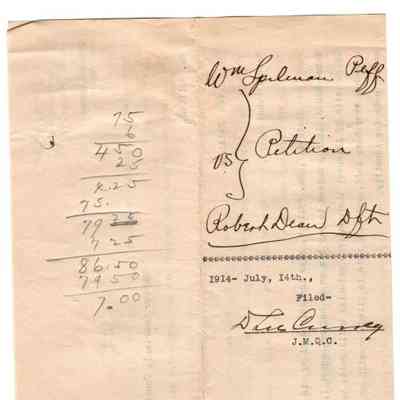 75
6
450
25
4.25
75.
79 25
7 25
86.50
79 50
7.00
Wm Spelman Plff
vs Petition
Robert Dean Dft
1914- July, 14th.,
Filed-
J.M.Q.C.